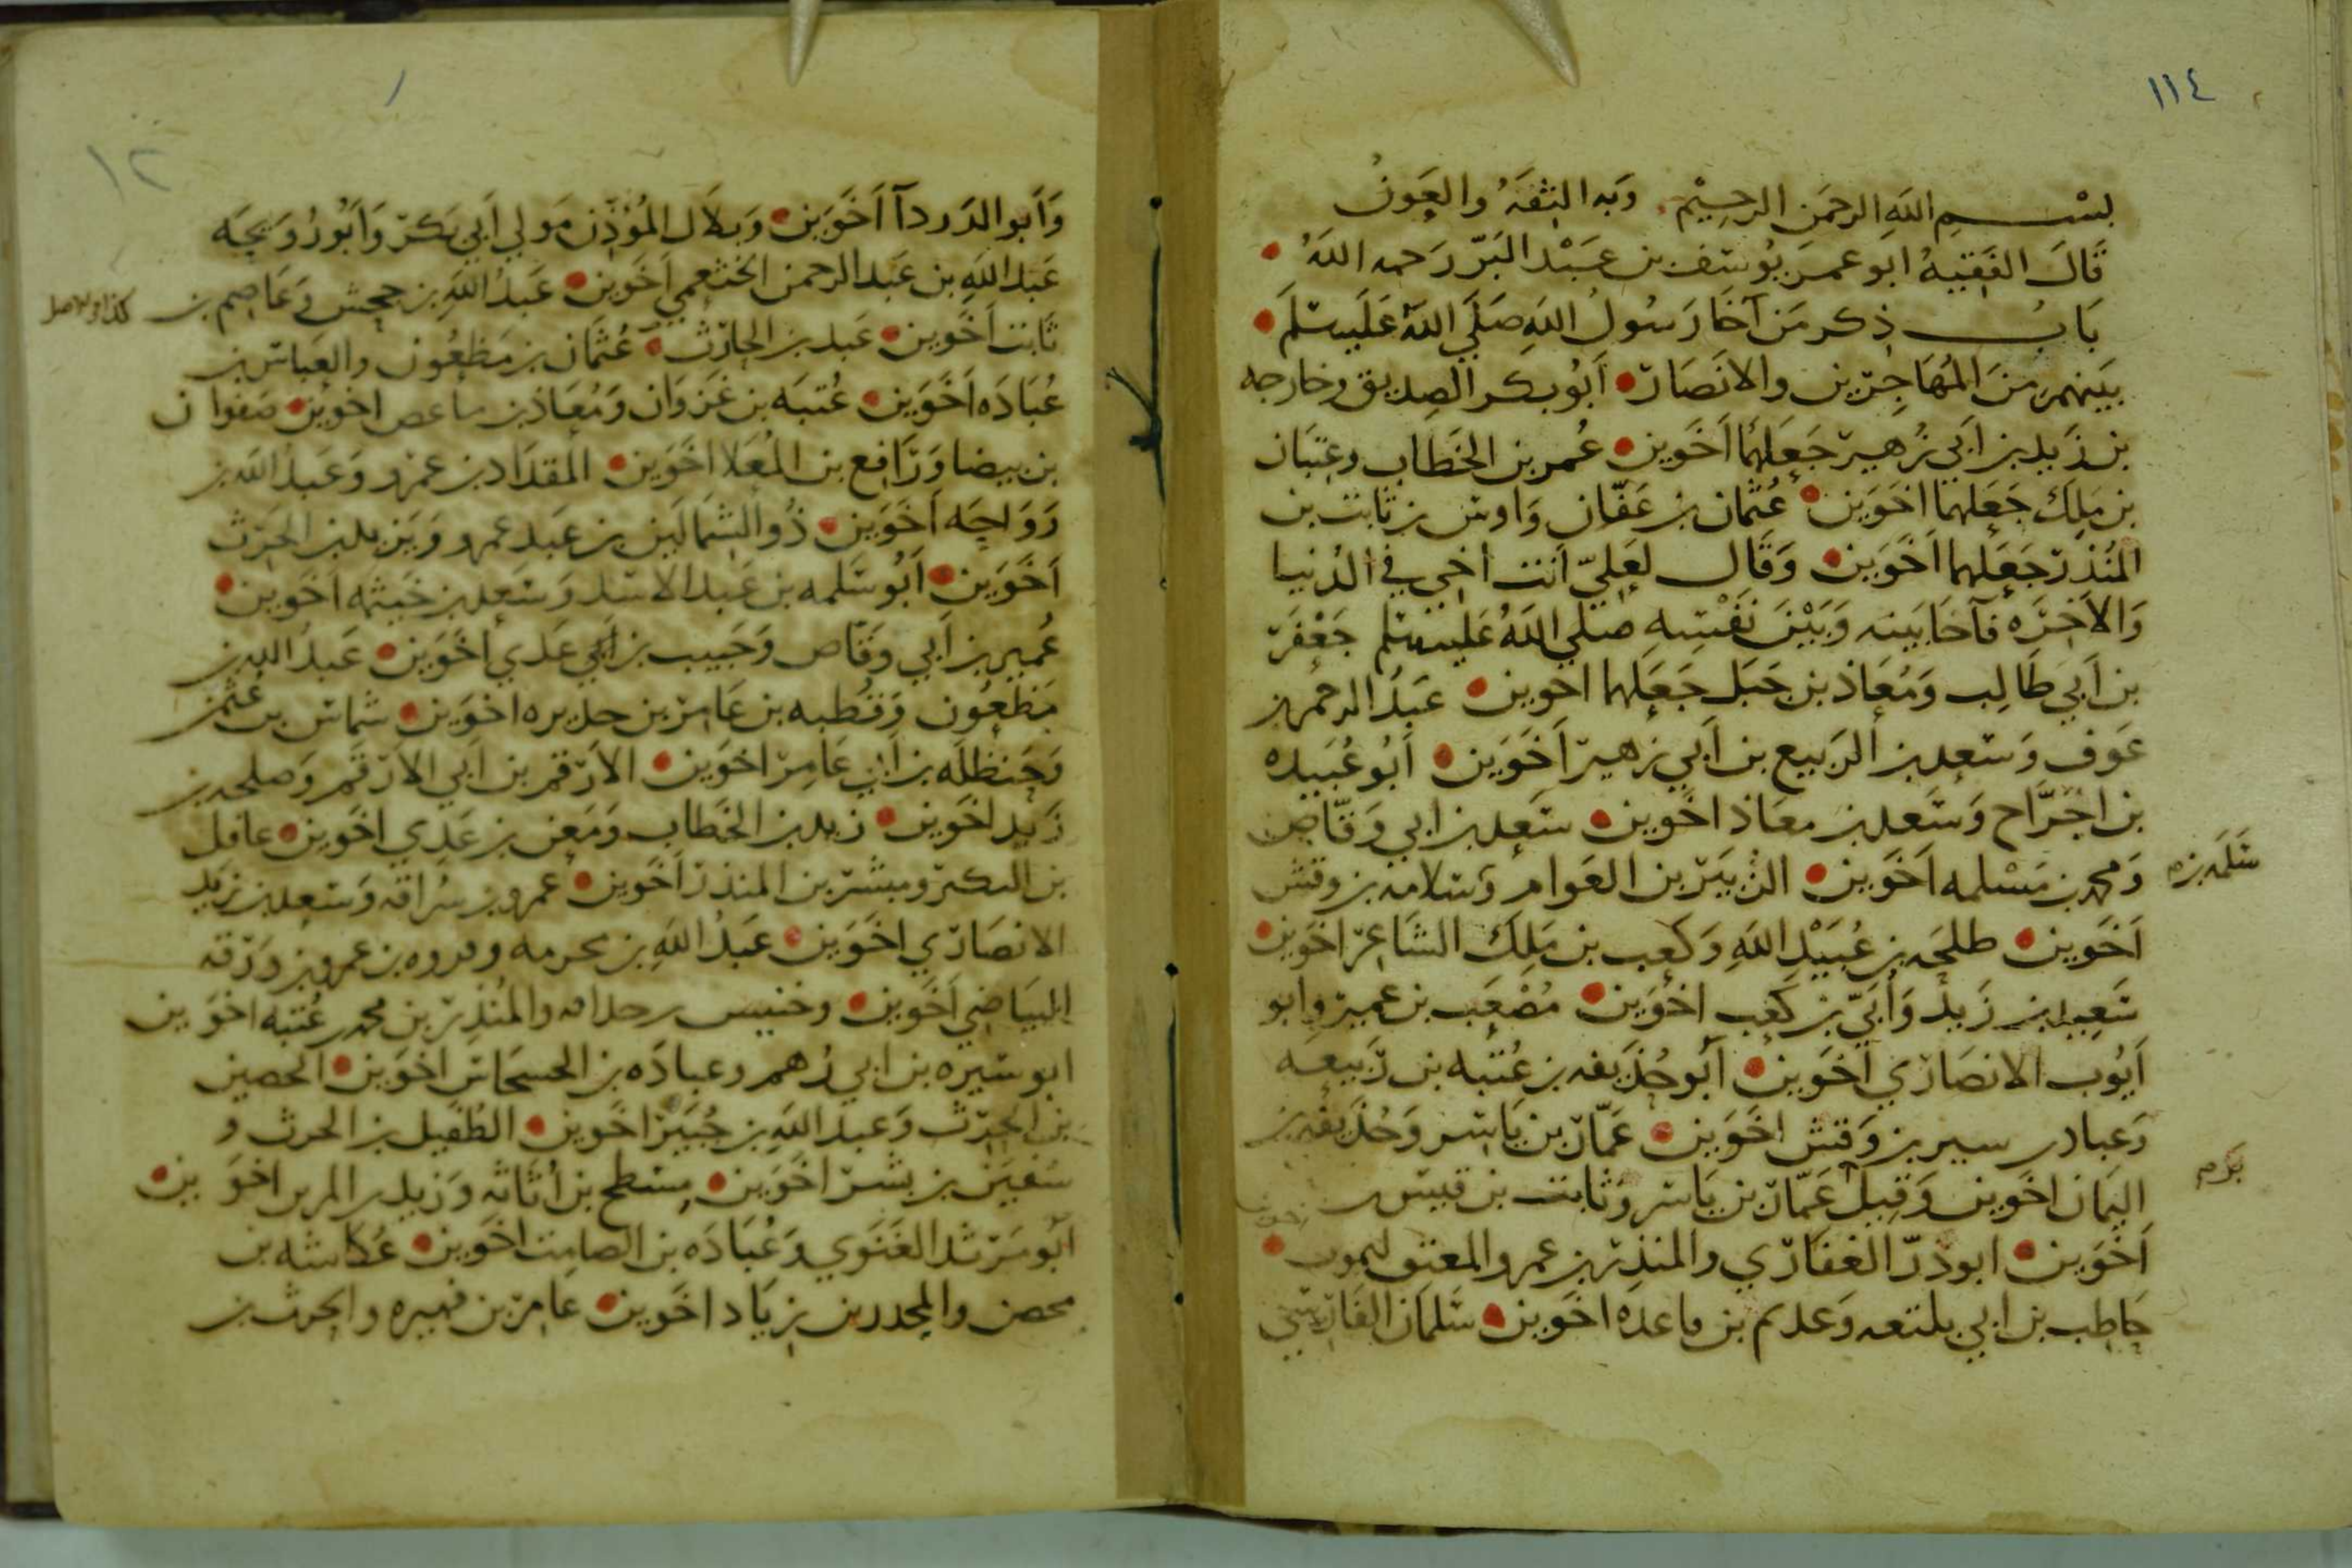 ١١٤
بسم الله الرحمن الرحيم وبه الثقة والعون
قال الفقيه ابو عمر يوسف بن عبد البر رحمه الله
باب ذكر من آخا رسول الله صلي الله عليه وسلم
بينهم من المهاجرين والانصار ابو بكر الصديق وخارجه
بن زيد بن ابي زهير جعلهما اخوين عمر بن الخطاب وعتبان
بن ملك جعلهما اخوين عثمان بن عفان واوس بن ثابت بن
المنذر جعلهما اخوين وقال لعلي انت اخي في الدنيا
والاخره فآخا بينه وبين نفسه صلي الله عليه وسلم جعفر
بن ابي طالب ومعاذ بن جبل جعلهما اخوين عبد الرحمن بن
عوف وسعد بن الربيع بن ابي زهير اخوين ابو عبيده
بن اجراح وسعد بن معاذ اخوين سعد بن ابي وقاص
ومحمد بن مسلمه اخوين الزبير بن العوام وسلامه بن وقش
سلمه بن
اخوين طلحه بن عبيد الله وكعب بن ملك الشاعر اخوين
سعيد بن زيد وابي بن كعب اخوين مصعب بن عمير وابو
ايوب الانصاري اخوين ابو حذيفه بن عتبه بن ربيعه
وعباد بن بن وقش اخوين عمار بن ياسر وحذيفه بن
اليمان اخوين وقيل عمار بن ياسر وثابت بن قيس
اخوين ابو ذر الغفاري والمنذر بن عمرو المعتق ليموت
حاطب بن ابي بلتعه وعديم بن ماعده اخوين سلمان الفارسي
١٢
وابو الدردآ اخوين وبلال المؤذن مولي ابي بكر وابو رويحه
عبد الله بن عبد الرحمن الخثعمي اخوين عبد الله بن جحش وعاصم بن
كذا في الاصل
ثابت اخوين عبد بن الحارث عثمان بن مظعون والعباس بن
عباده اخوين عتبه بن غزوان ومعاذ بن ماعص اخوين صفوان
بن بيضا ورافع بن المعلا اخوين المقداد بن عمرو وعبد الله بن
رواحه اخوين ذو الشمالين بن عبد عمرو ويزيد بن الحرث
اخوين ابو سلمه بن عبد الاسد وسعد بن خيثمه اخوين
عمير بن ابي وقاص وحبيب بن ابي عدي اخوين عبد الله بن
مظعون وقطبه بن عامر بن حديره اخوين شماس بن عثمن
وحنظله بن ابي عامر اخوين الارقم بن ابي الارقم وصلحه بن
زيد اخوين زيد بن الخطاب ومعن بن عدي اخوين عاقل
بن البكير ومبشر بن المنذر اخوين عمرو بن سراقه وسعد بن زيد
الانصاري اخوين عبد الله بن محرمه وفروه بن عمرو بن ورقه
البياضي اخوين وخنيس بن حذافه والمنذر بن محمد بن عتبه اخوين
ابو سبره بن ابي رهم وعباده بن الحسحاس اخوين الحصين
بن الحرث وعبد الله بن جبير اخوين الطفيل بن الحرث و
سفين بن بشر اخوين مسطح بن اثاثه وزيد بن المرين اخوين
ابو مرثد الغنوي وعباده بن الصامت اخوين عكاشه بن
محصن والمجدر بن زياد اخوين عامر بن فهيره والحرث بن